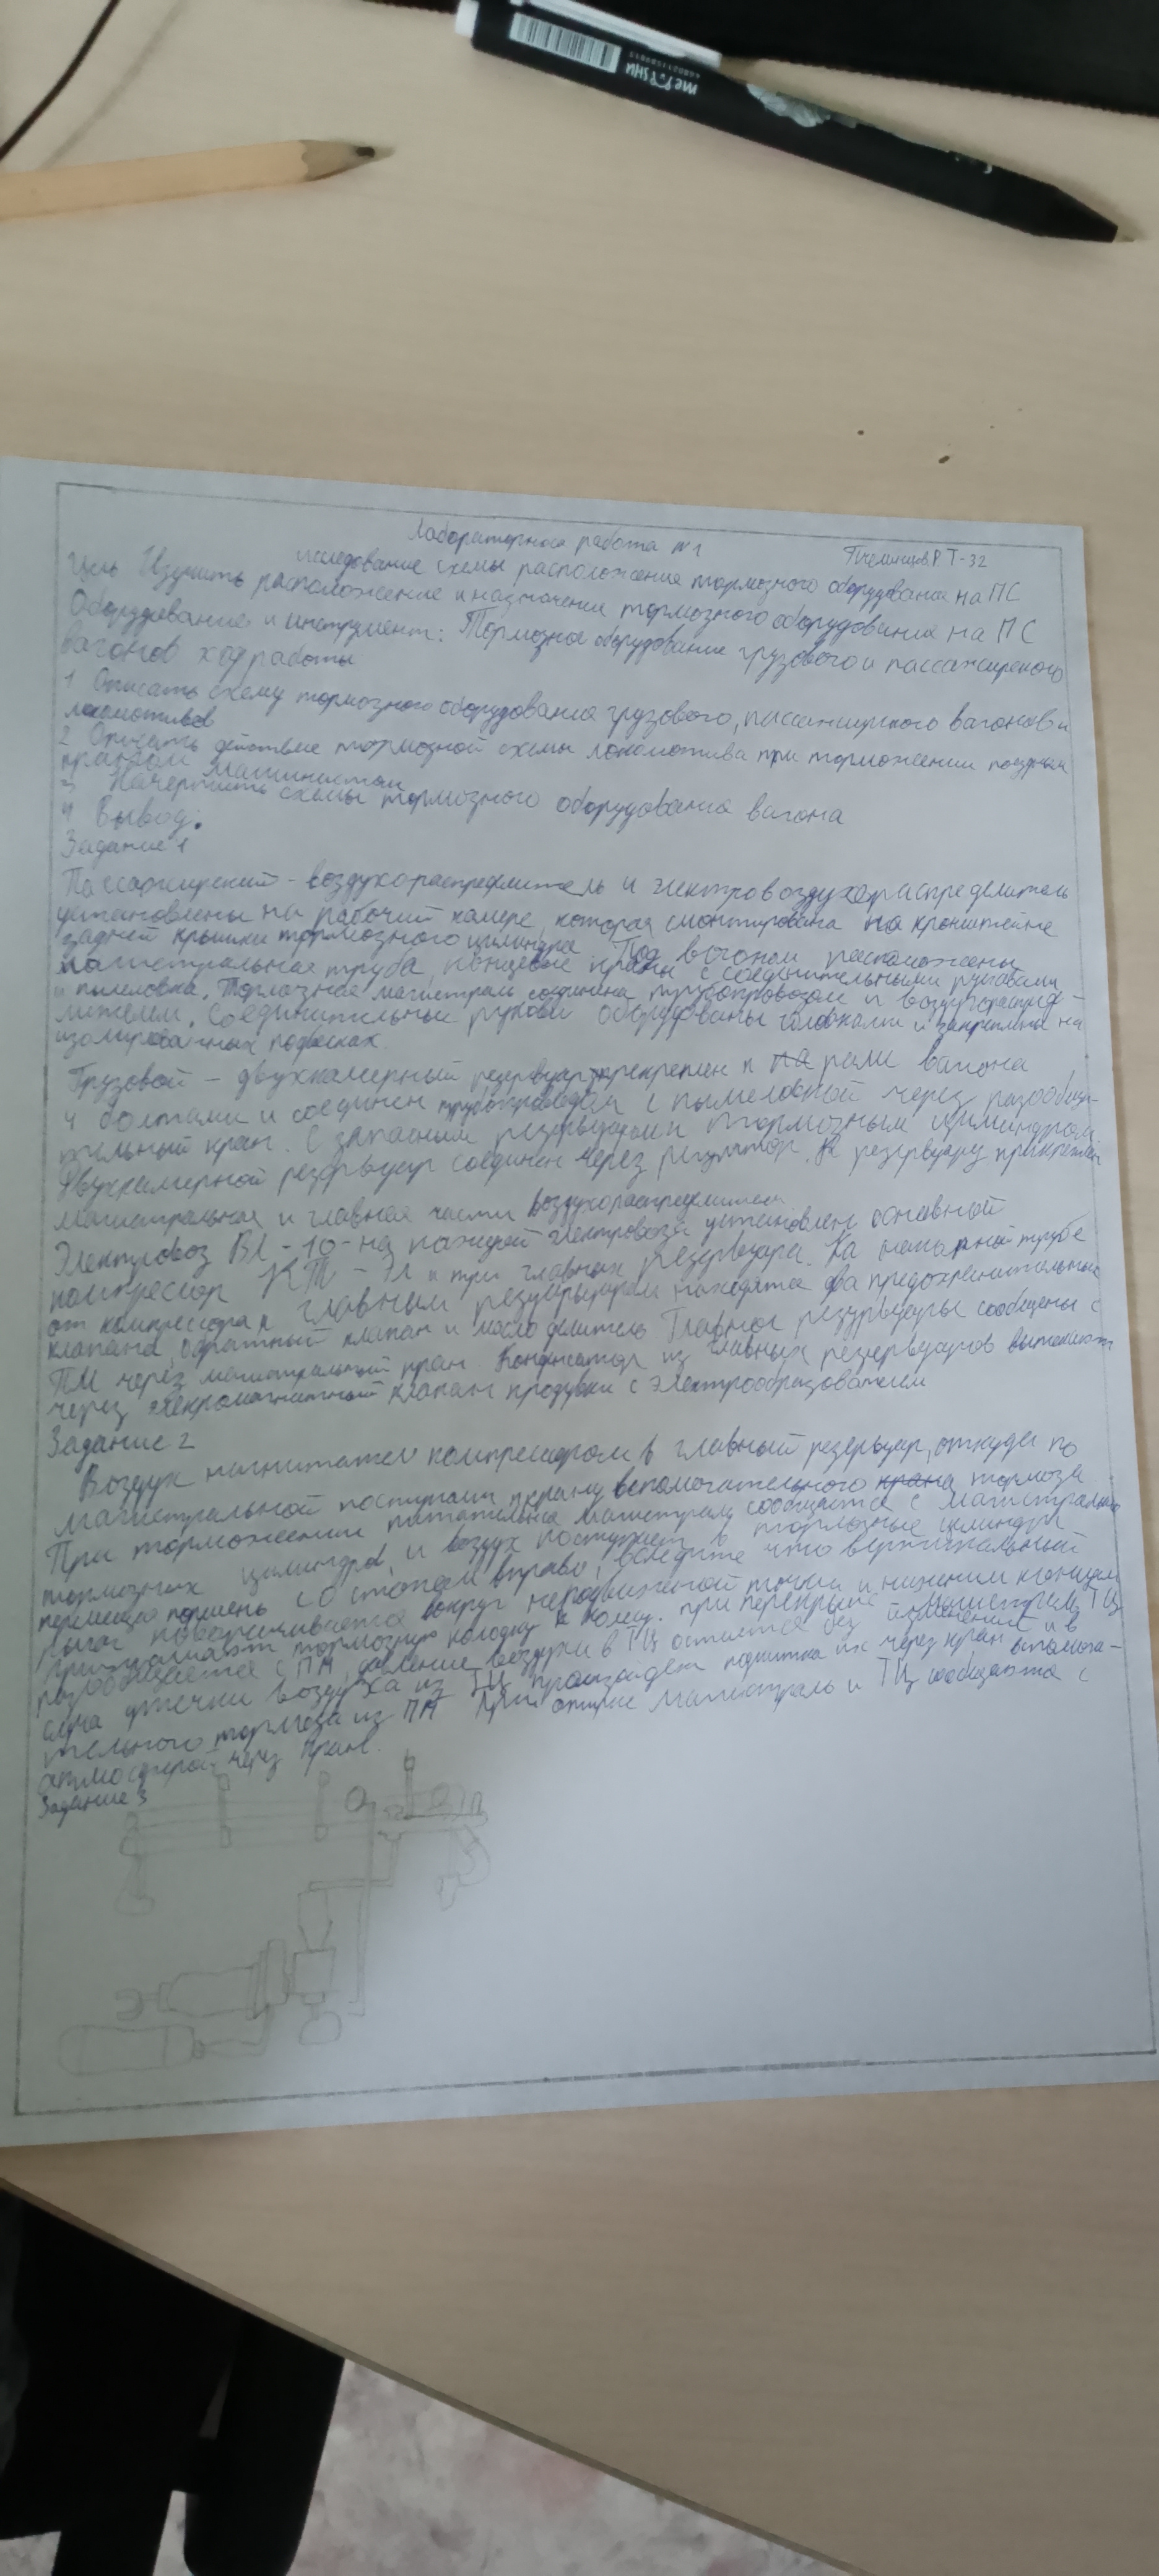 Лабораторная работа №1
Пчелинцев Р. Т-32
исследование схемы расположения тормозного оборудования на ПС
Цель Изучить расположение и назначение тормозного оборудования на ПС
Оборудование и инструмент: Тормозное оборудование грузового и пассажирского
вагонов ход работы
1 Описать схему тормозного оборудования грузового, пассажирского вагонов и
локомотивов
2 Описать действие тормозной схемы локомотива при торможении поездным
краном машиниста
3 Начертить схемы тормозного оборудования вагона
4 Вывод.
Задание 1
Пассажирский - воздухораспределитель и электровоздухораспределитель
установлены на рабочей камере, которая смонтирована на кронштейне
задней крышки тормозного цилиндра. Под вагоном расположены
магистральная труба, концевые краны с соединительными рукавами
и пылеловка. Тормозная магистраль соединена трубопроводом и воздухораспред-
лителем. Соединительные рукава оборудованы головками и закреплены на
изолированных подвесках.
Грузовой - двухкамерный резервуар прикреплен к раме вагона
4 болтами и соединен трубопроводом с пылеловкой через разобщи-
тельный кран. С запасным резервуаром и тормозным цилиндром.
Двухкамерной резервуар соединен через регулятор. К резервуару прикреплен
магистральная и главная части воздухораспределителя
Электровоз ВЛ-10-на каждой электровоза установлен основной
компрессор КТ-Эл и три главных резервуара. На напорной трубе
от компрессора к главным резервуарам находятся два предохранительных
клапана, обратный клапан и маслоделитель Главное резурвуары сообщены с
ПМ через магистральный кран. Конденсатор из главных резервуаров вытекают
через электромагнитный клапан продувки с электрообразователем
Задание 2
Воздух нагнитател компрессором в главный резервуар, откуда по
магистральной поступати крану вспомогательного крана тормоза
При торможении питательная магистраль сообщается с магистралью
тормозных цилиндров, и воздух поступает в тормозные цилиндры
перемещая поршень со штоком вправо, вследствие что вертикальный
рычаг поворачивается вокруг неподвиженой точки и нижним концом
прижимает тормозную колодку к колесу. при перекрыше магистраль ТЦ
разобщается с ПМ, давление воздуха в ТЦ остается без изменения и в
случа утечки воздуха из ТЦ произойдет подпитка их через кран вспомога-
тельного тормоза из ПМ При отпуске магистраль и ТЦ сообщаются с
атмосферой через кран.
Задание 3